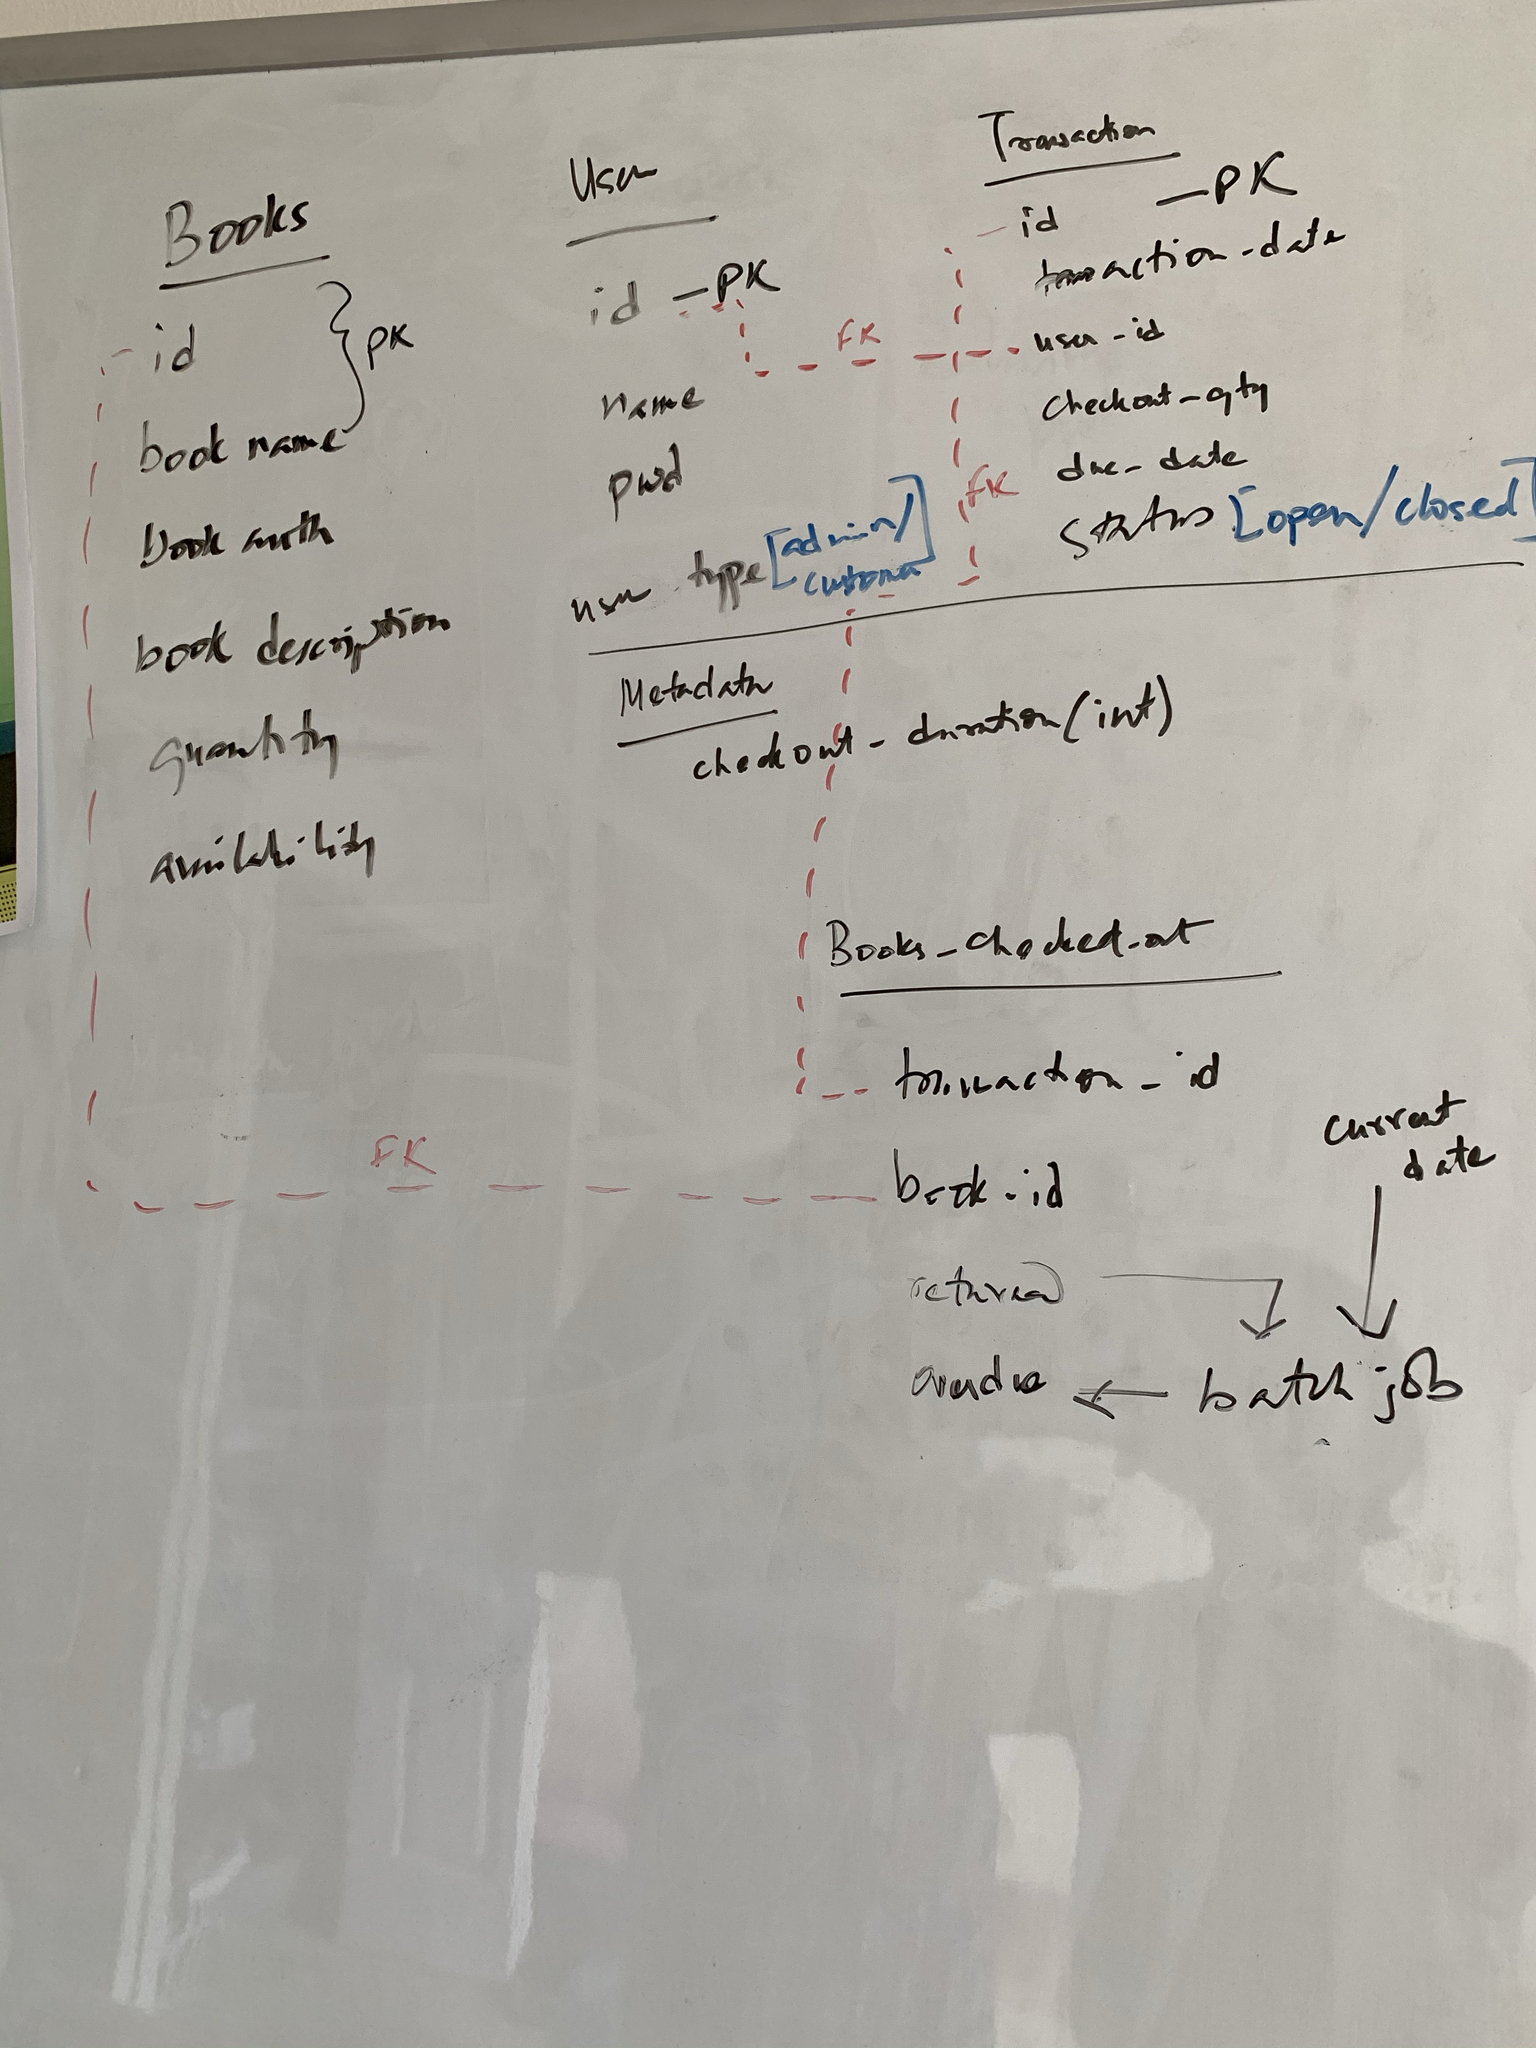 Books
id
PK
book name
book auth
book description
quantity
availability
User
id - PK
name
pwd
user type [admin/
customer]
FK
Transaction
id - PK
transaction-date
user-id
checkout-qty
due-date
status [open/closed]
FK
Metadata
checkout-duration (int)
Books-checked-out
transaction-id
book-id
FK
returned
overdue
batch job
current
date